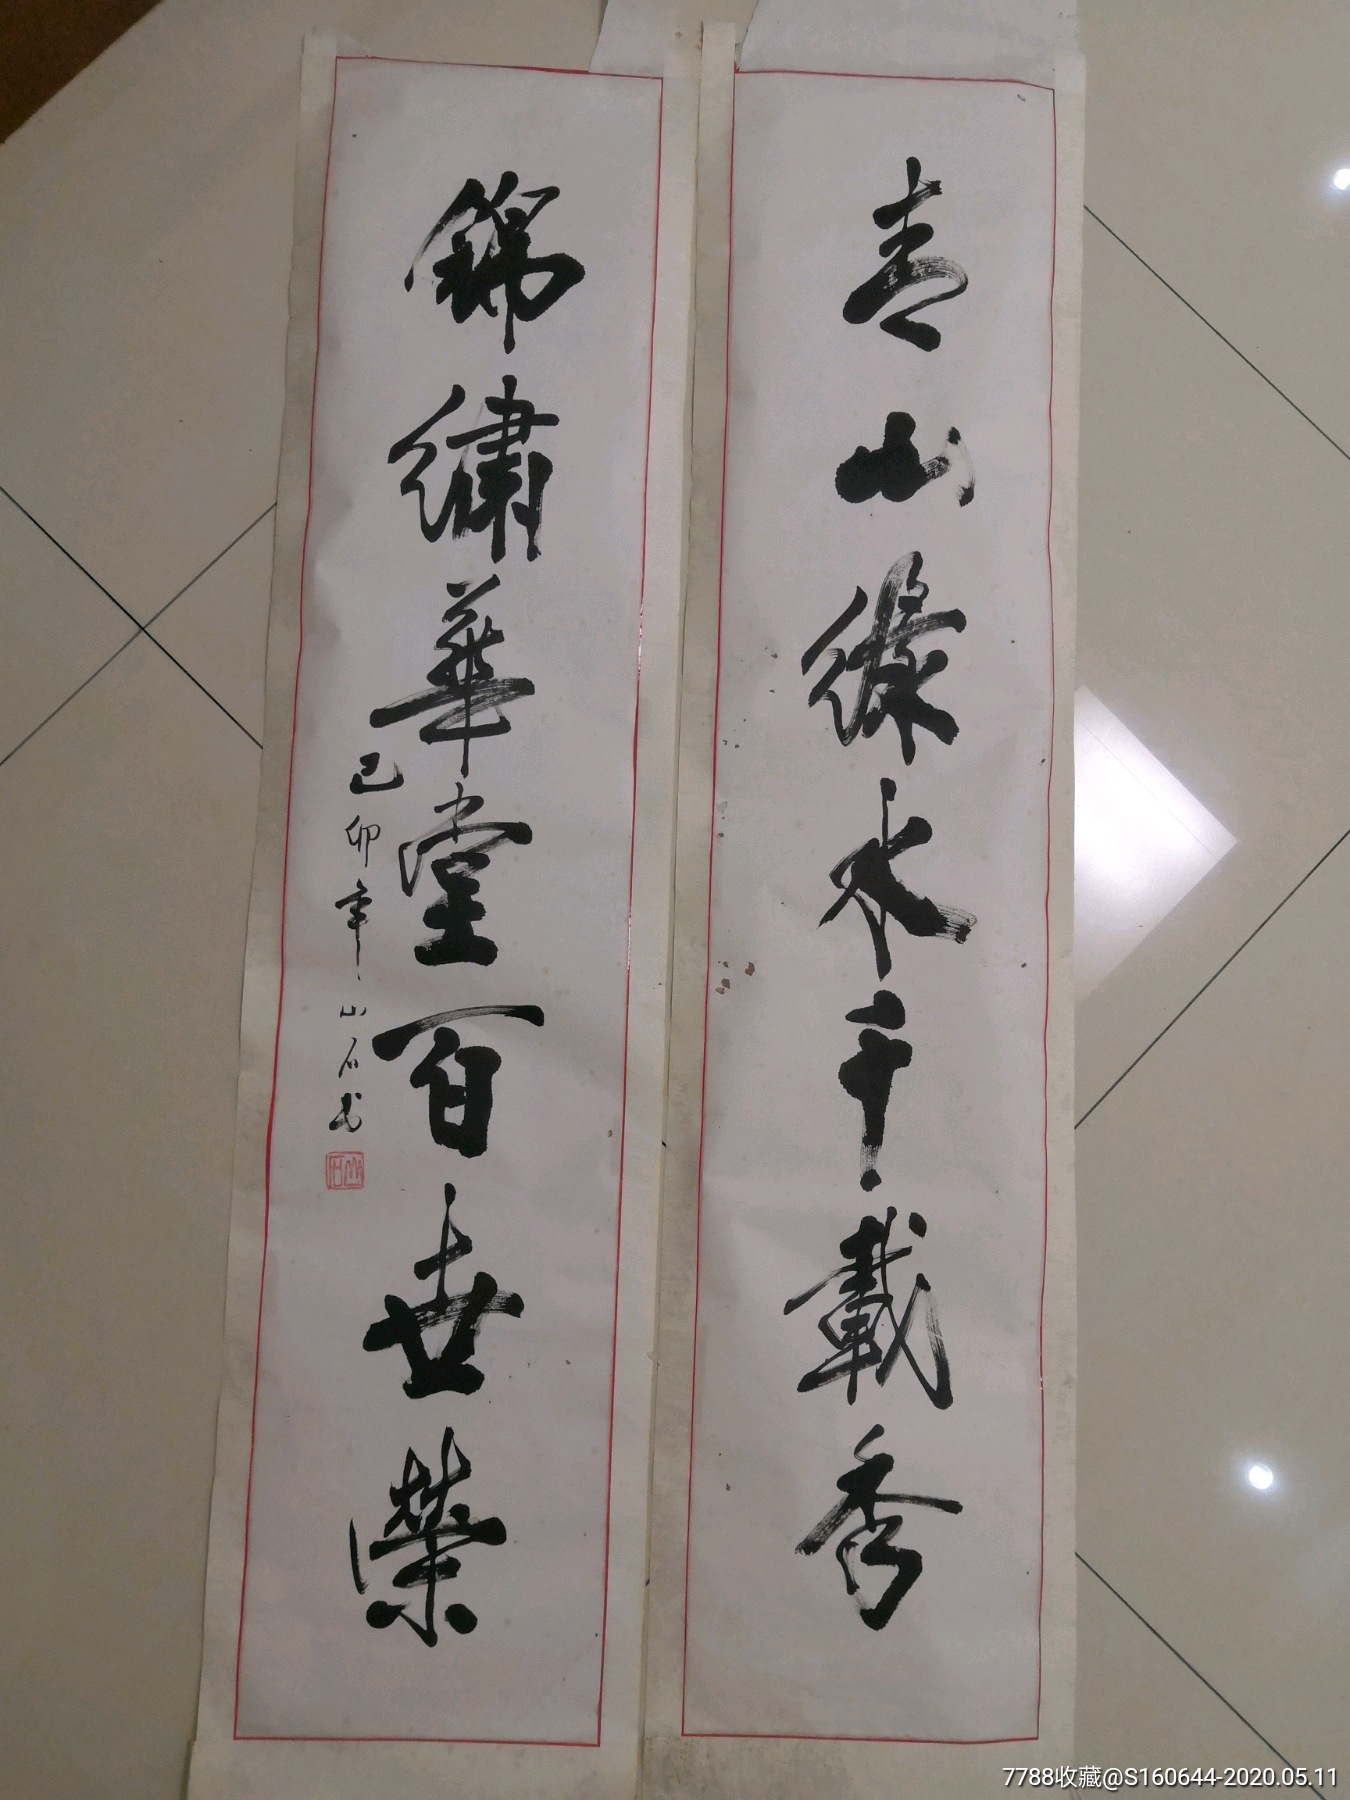 青山緑水千載秀
錦繡華堂百世榮
己卯年山石书
山石
7788收藏@S160644-2020.05.11